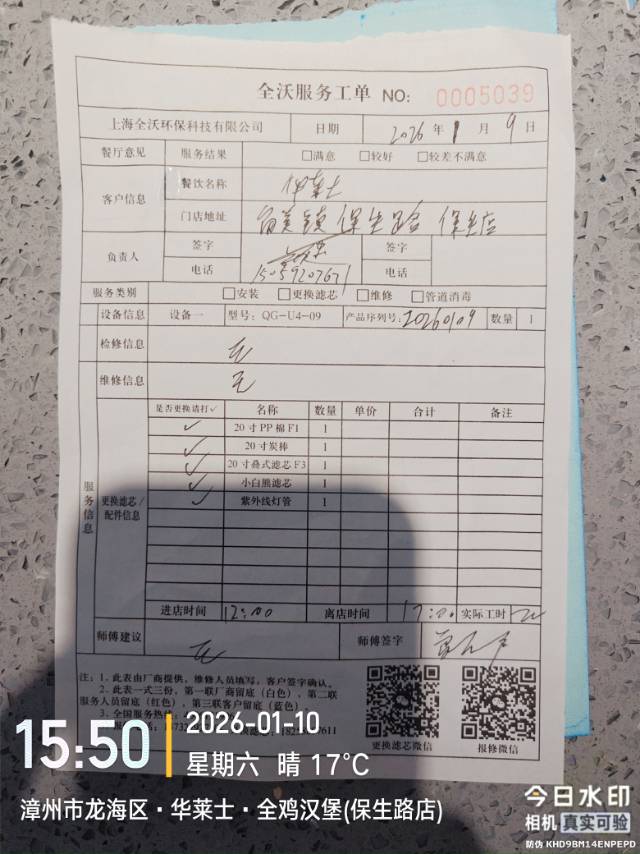 全沃服务工单 NO: 0005039
上海全沃环保科技有限公司 日期 2026 年 1 月 9 日
餐厅意见 服务结果 □满意 □较好 □较差不满意
客户信息 餐饮名称 华莱士
门店地址 角美镇保生路 保生店
负责人 签字 签字
电话 15059207671 电话
服务类别 □安装 □更换滤芯 □维修 □管道消毒
设备信息 设备一 型号: QG-U4-09 产品序列号: 20260109 数量 1
检修信息 无
维修信息 无
服务信息
更换滤芯/配件信息
是否更换请打✓ 名称 数量 单价 合计 备注
✓ 20寸PP棉F1 1
✓ 20寸炭棒 1
✓ 20寸叠式滤芯F3 1
✓ 小白熊滤芯 1
✓ 紫外线灯管 1
进店时间 12:00 离店时间 17:00 实际工时
师傅建议 无 师傅签字
注: 1. 此表由厂商提供, 维修人员填写, 客户签字确认。
2. 此表一式三份, 第一联厂商留底(白色), 第二联
服务人员留底(红色), 第三联客户留底(蓝色)。
3. 全国服务热
更换滤芯微信 报修微信
15:50
2026-01-10
星期六 晴 17℃
漳州市龙海区·华莱士·全鸡汉堡(保生路店)
今日水印
相机 真实可验
防伪 KHD9BM14ENPEPD